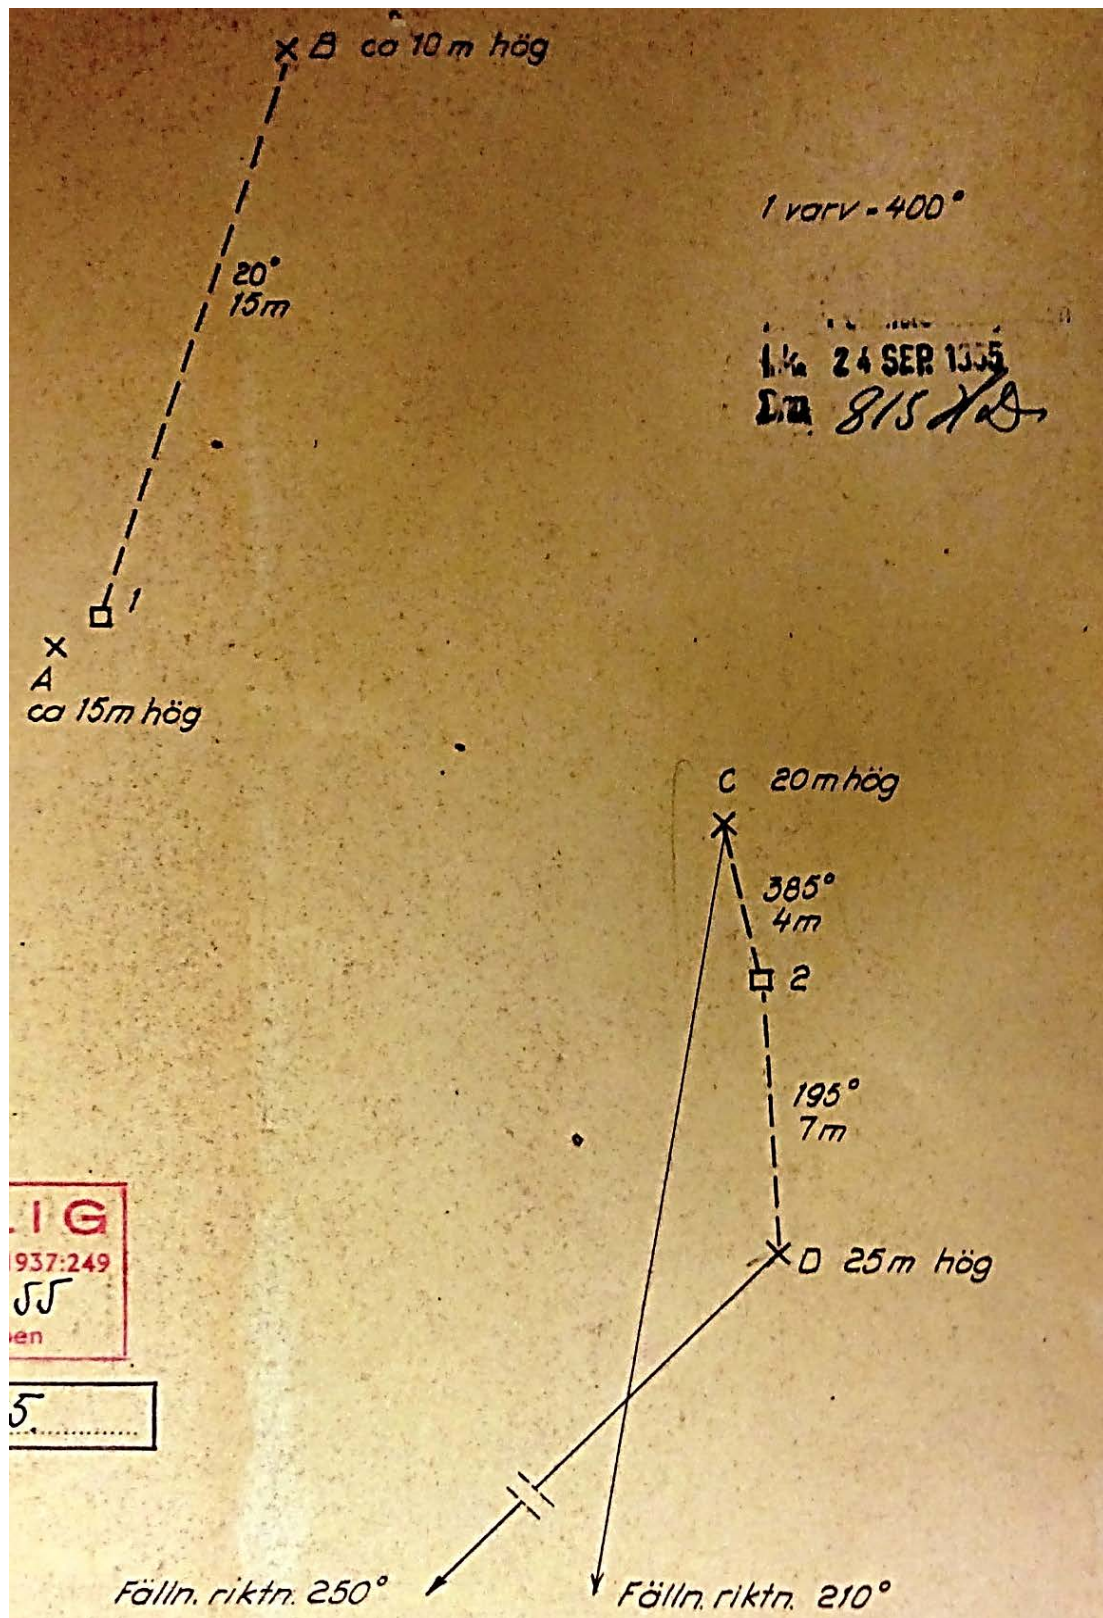 B ca 10 m hög
1 varv = 400°
20°
15m
24 SEP. 1955
815
1
A
ca 15m hög
C 20m hög
385°
4m
2
195°
7m
LIG
1937:249
55
D 25m hög
5.
Fälln. riktn. 250°
Fälln. riktn. 210°